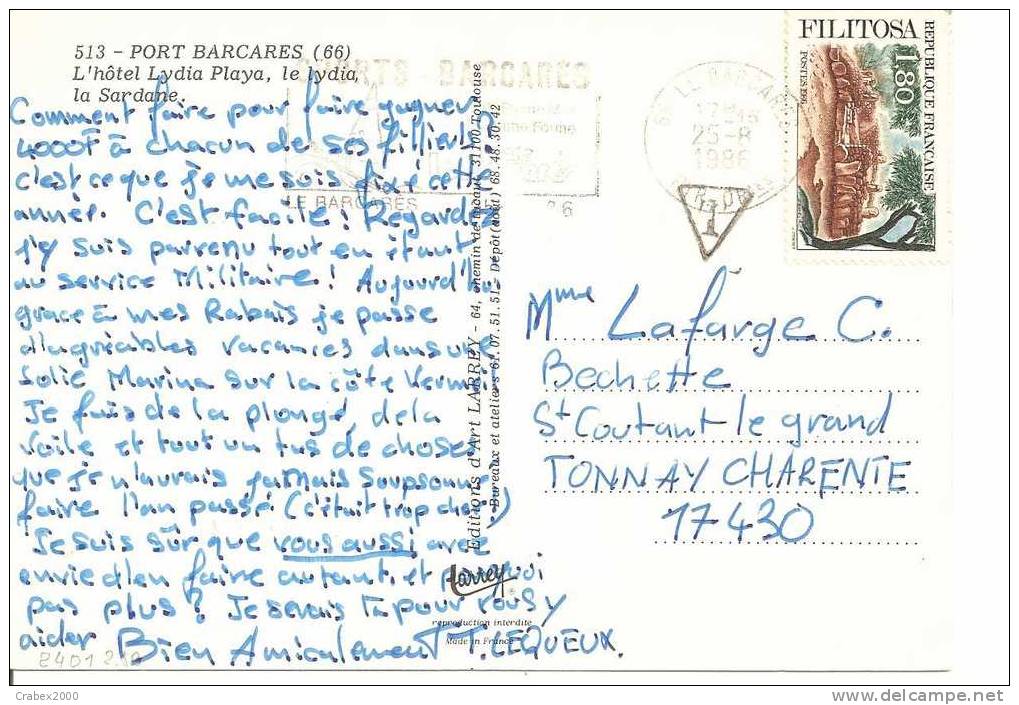 513 – PORT BARCARES (66)
L'hôtel Lydia Playa, le lydia,
la Sardane.
Comment faire pour faire gagner
4000F à chacun de ses filliers?
c'est ce que je me suis fixé cette
année. C'est facile! Regardez
j'y suis parvenu tout en étant
au service Militaire! Aujourd'hui
grace à mes Rabais je passe
d'agréables vacances dans une
Jolie Marina sur la côte Vermeille
Je fais de la plongé, de la
voile et tout un tas de choses
que je n'aurais jamais soupsonné
faire l'an passé (c'était trop cher!)
Je suis sûr que vous aussi avez
envie d'en faire autant, et pourquoi
pas plus? Je serais là pour vous y
aider Bien Amicalement T. LEQUEUX.
8401
Editions d'Art LARREY - 64, chemin de 31100 Toulouse
Bureaux et ateliers 61.07.51.51 - Dépôt 68.48.30.42
Larrey
reproduction interdite
Made in France
SPORTS BARCARES
LE BARCARES
66 LE BARCARES
25-8
1986
T
1
FILITOSA
1,80
REPUBLIQUE FRANÇAISE
POSTES 1986
Mme Lafarge C.
Bechette
St Coutant le grand
TONNAY CHARENTE
17430
Crabex2000
www.delcampe.net